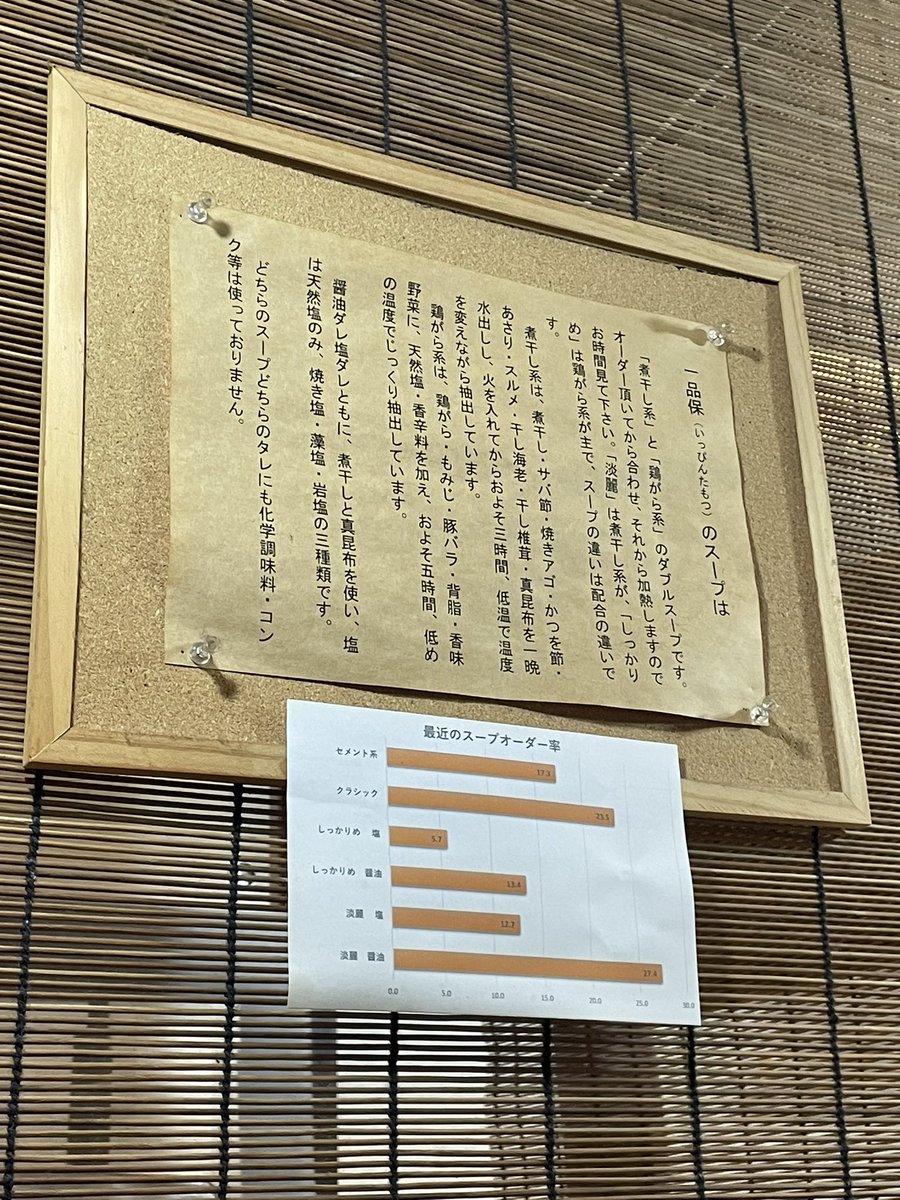 一品保（いっぴんたもつ）のスープは
「煮干し系」と「鶏がら系」のダブルスープです。
オーダー頂いてから合わせ、それから加熱しますので
お時間見て下さい。「淡麗」は煮干し系が、「しっかり
め」は鶏がら系が主で、スープの違いは配合の違いで
す。
煮干し系は、煮干し・サバ節・焼きアゴ・かつを節・
あさり・スルメ・干し海老・干し椎茸・真昆布を一晩
水出しし、火を入れてからおよそ三時間、低温で温度
を変えながら抽出しています。
鶏がら系は、鶏がら・もみじ・豚バラ・背脂・香味
野菜に、天然塩・香辛料を加え、およそ五時間、低め
の温度でじっくり抽出しています。
醤油ダレ塩ダレともに、煮干しと真昆布を使い、塩
は天然塩のみ、焼き塩・藻塩・岩塩の三種類です。
どちらのスープどちらのタレにも化学調味料・コン
ク等は使っておりません。
最近のスープオーダー率
セメント系 17.3
クラシック 23.5
しっかりめ 塩 5.7
しっかりめ 醤油 13.4
淡麗 塩 12.7
淡麗 醤油 27.4
0.0 5.0 10.0 15.0 20.0 25.0 30.0